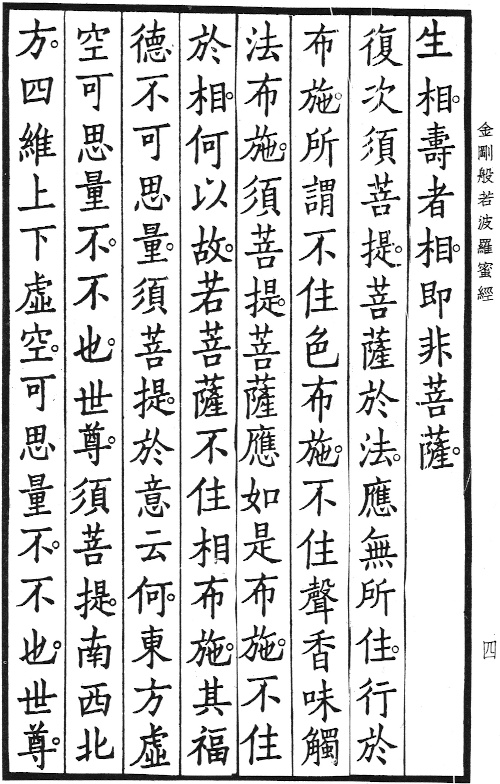 金剛般若波羅蜜經
四
生相。壽者相。即非菩薩。
復次須菩提。菩薩於法。應無所住。行於
布施。所謂不住色布施。不住聲香味觸
法布施。須菩提。菩薩應如是布施。不住
於相。何以故。若菩薩不住相布施。其福
德不可思量。須菩提。於意云何。東方虛
空可思量不。不也。世尊。須菩提。南西北
方。四維上下虛空。可思量不。不也。世尊。